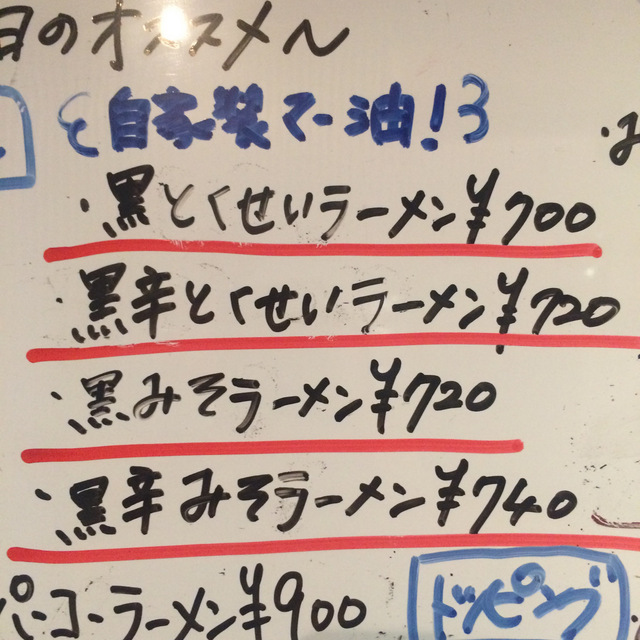 日のオススメ〜
自家製マー油！
・黒とくせいラーメン¥700
・黒辛とくせいラーメン¥720
・黒みそラーメン¥720
・黒辛みそラーメン¥740
パーコーラーメン¥900
トッピング